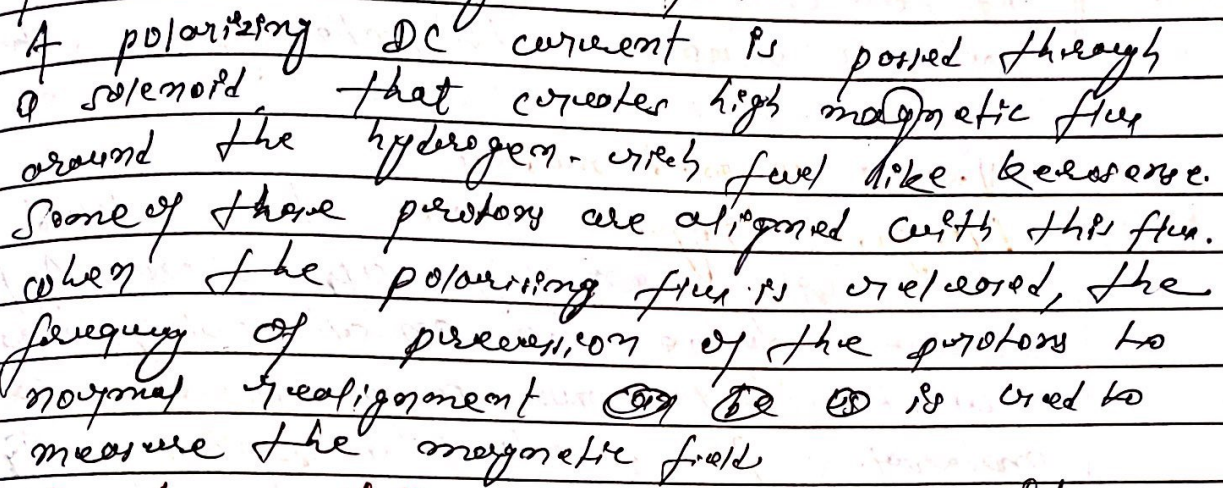 A polarizing DC current is passed through
a solenoid that creates high magnetic flux
around the hydrogen-rich fuel like kerosense.
Some of these protons are aligned with this flux.
when the polarising flux is released, the
frequency of precession of the protons to
normal realignment is used to
measure the magnetic field